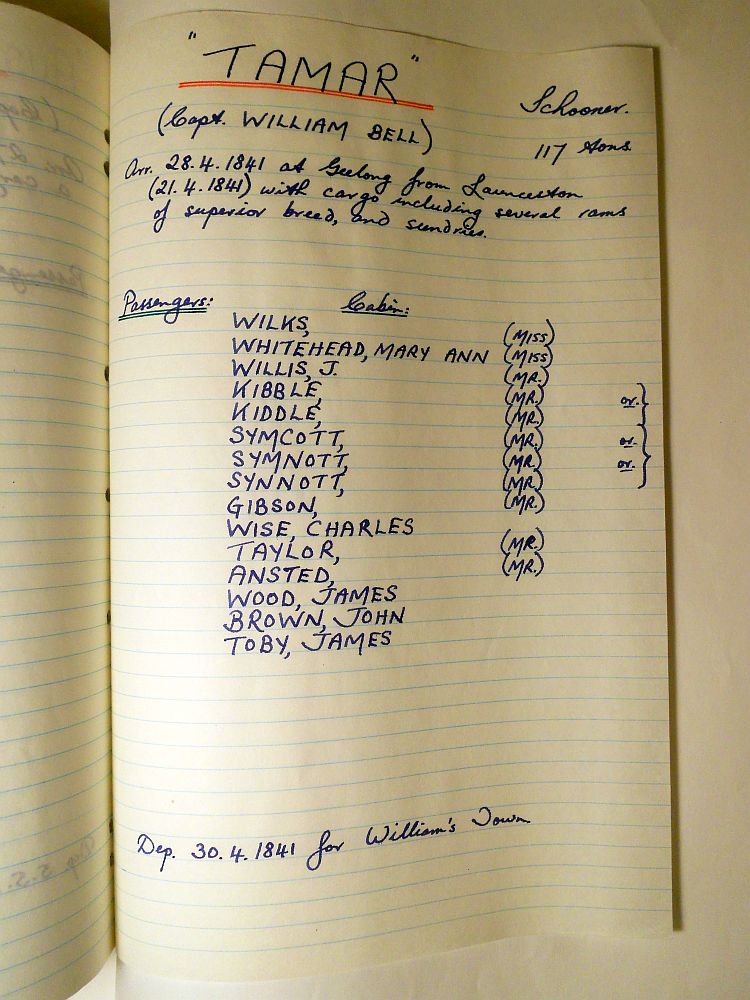 "TAMAR"
Schooner.
(Capt. WILLIAM BELL)
117 tons
Arr. 28.4.1841 at Geelong from Launceston
(21.4.1841) with cargo including several rams
of superior breed, and sundries.
Passengers: Cabin:
WILKS, (MISS)
WHITEHEAD, MARY ANN (MISS)
WILLIS, J. (MR.)
KIBBLE, (MR.) or }
KIDDLE, (MR.)
SYMCOTT, (MR.) or }
SYMNOTT, (MR.) or
SYNNOTT, (MR.)
GIBSON, (MR.)
WISE, CHARLES
TAYLOR, (MR.)
ANSTED, (MR.)
WOOD, JAMES
BROWN, JOHN
TOBY, JAMES
Dep. 30.4.1841 for William's Town